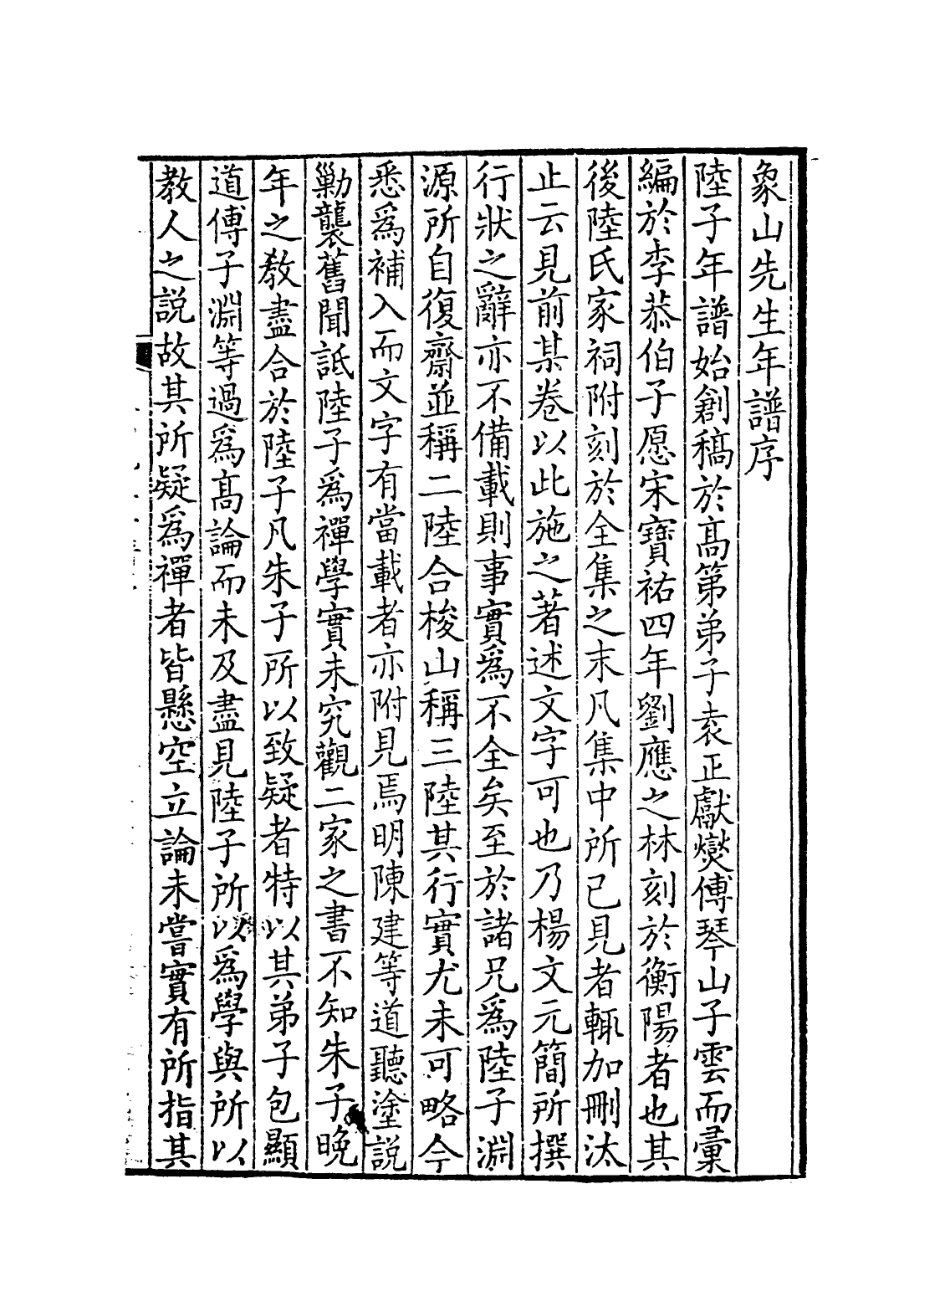 象山先生年譜序
陸子年譜始創稿於高第弟子袁正獻爕傅琴山子雲而彙
編於李恭伯子愿宋寶祐四年劉應之林刻於衡陽者也其
後陸氏家祠附刻於全集之末凡集中所已見者輒加刪汰
止云見前某卷以此施之著述文字可也乃楊文元簡所撰
行狀之辭亦不備載則事實爲不全矣至於諸兄爲陸子淵
源所自復齋並稱二陸合梭山稱三陸其行實尤未可略今
悉爲補入而文字有當載者亦附見焉明陳建等道聽塗說
勦襲舊聞詆陸子爲禪學實未究觀二家之書不知朱子晚
年之教盡合於陸子凡朱子所以致疑者特以其弟子包顯
道傅子淵等過爲高論而未及盡見陸子所以爲學與所以
教人之說故其所疑爲禪者皆懸空立論未嘗實有所指其